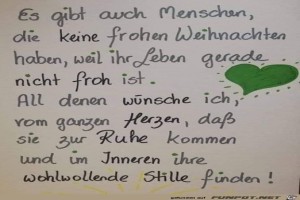 Es gibt auch Menschen,
die keine frohen Weihnachten
haben, weil ihr Leben gerade
nicht froh ist.
All denen wünsche ich,
vom ganzen Herzen, daß
sie zur Ruhe kommen
und im Inneren ihre
wohlwollende Stille finden!
FUNPOT.NET